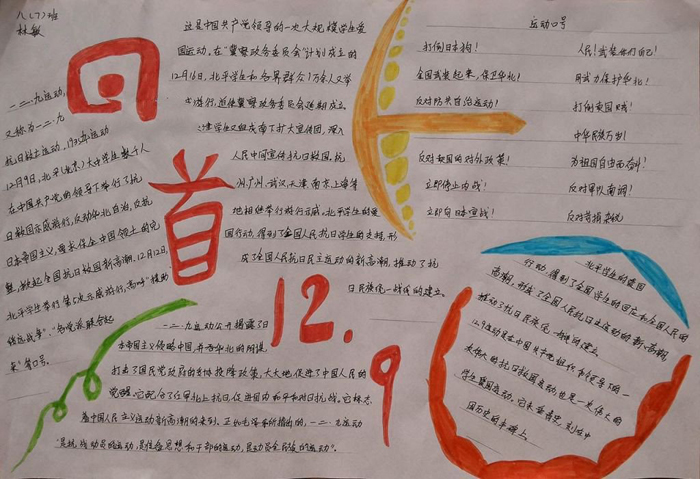 八(7)班
林敏
回
首
12.9
一二·九运动,
又称为一二·九
抗日救亡运动,1935年
12月9日,北平(北京)大中学生数千人
在中国共产党的领导下举行了抗
日救国示威游行,反动华北自治,反抗
日本帝国主义,要求保全中国领土的完
整,掀起全国抗日救国新高潮.12月12日,
北平学生举行第5次示威游行,高呼"援助
绥远抗战","各党派联合起
来"等口号.
这是中国共产党领导的一次大规模学生爱
国运动.在"冀察政务委员会"计划成立的
12月16日,北平学生和各界群众1万余人又举
行游行,迫使冀察政务委员会延期成立.
津学生又组成南下扩大宣传团,深入
人民中间宣传抗日救国.杭
州,广州,武汉,天津,南京,上海等
地相继举行游行示威.北平学生的爱
国行动,得到了全国人民抗日学生的支持,形
成了全国人民抗日民主运动的新高潮,推动了抗
日民族统一战线的建立.
一二·九运动公开揭露了日
本帝国主义侵略中国,并吞华北的阴谋
打击了国民党政府的妥协投降政策,大大地促进了中国人民的
觉醒.它配合了红军北上抗日,促进国内和平和对日抗战,它标志
着中国人民主义运动新高潮的来到.正如毛泽东所指出的,一二·九运动
"是抗战动员的运动,是准备思想和干部的运动,是动员全民族的运动".
运动口号
打倒日本狗! 人民!武装你们自己!
全国武装起来,保卫华北! 用武力保护华北!
反对防共自治运动! 打倒卖国贼!
中华民族万岁!
反对卖国的对外政策! 为祖国自由而奋斗!
立即停止内战! 反对军队南调!
立即向日本宣战!
北平学生的爱国
行动,得到了全国学生的回应和全国人民的
高潮,形成了全国人民抗日主运动的新高潮
推动了抗日民族统一战线的建立.
12.9运动是在中国共产党组织和领导下的一
次伟大的抗日救国运动,也是一次伟大的
学生爱国运动.它永垂青史,刻在中
国历史的丰碑上.